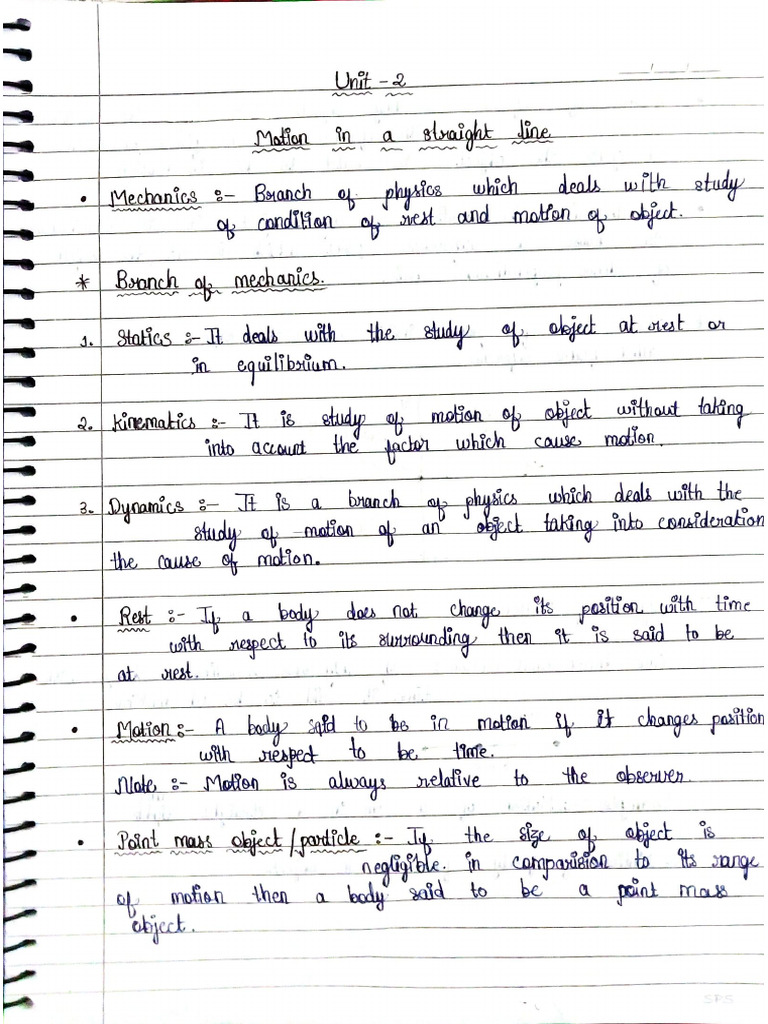 Unit - 2
Motion in a straight line
• Mechanics :- Branch of physics which deals with study
of condition of rest and motion of object.
* Branch of mechanics.
1. Statics :- It deals with the study of object at rest or
in equilibrium.
2. Kinematics :- It is study of motion of object without taking
into account the factor which cause motion.
3. Dynamics :- It is a branch of physics which deals with the
study of motion of an object taking into consideration
the cause of motion.
• Rest :- If a body does not change its position with time
with respect to its surrounding then it is said to be
at rest.
• Motion :- A body said to be in motion if it changes position
with respect to be time.
Note :- Motion is always relative to the observer.
• Point mass object / particle :- If the size of object is
negligible. in comparision to its range
of motion then a body said to be a point mass
object.
SPS